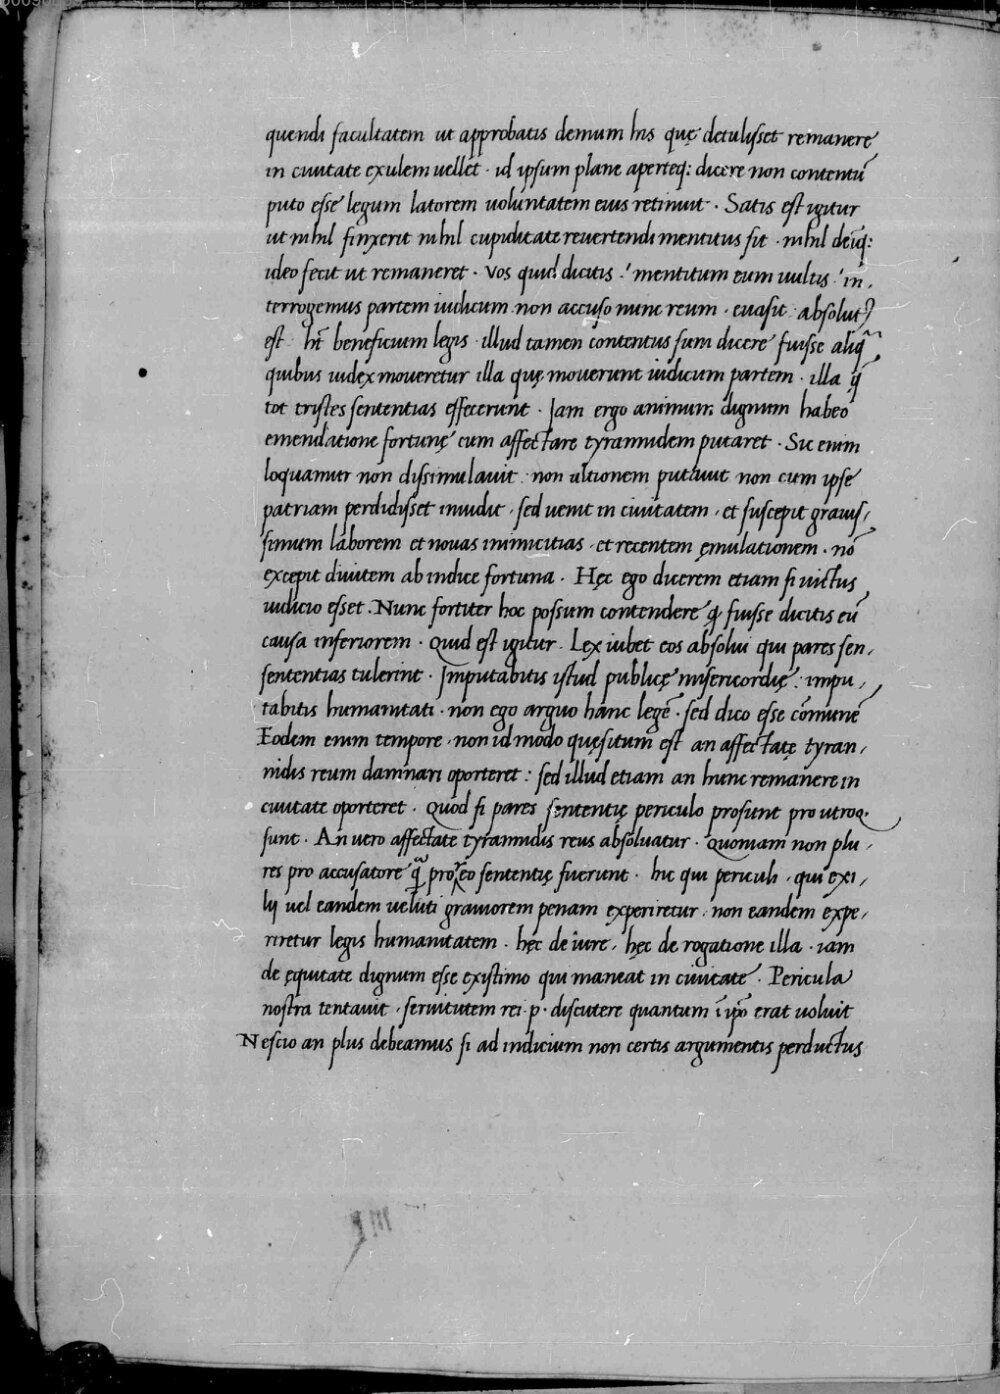 quendi facultatem ut approbatis demum his quę detulisset remanere
in ciuitate exulem uellet · id ipsum plane aperteq: dicere non contentū
puto esse legum latorem uoluntatem eius retinuit · Satis est igitur
ut nihil finxerit nihil cupiditate reuertendi mentitus sit · nihil deīq:
ideo fecit ut remaneret · Vos quid dicitis · mentitum eum uultis · in,
terrogemus partem iudicum non accuso nunc reum · euasit · absolut
est · ht̄ beneficium legis · illud tamen contentus sum dicere fuisse aliq̄,
quibus iudex moueretur illa quę mouerunt iudicum partem · illa q̄
tot tristes sententias effecerunt · Iam ergo animum dignum habeo
emendatione fortunę cum affectare tyrannidem putaret · Sic enim
loquamur non dissimulauit · non ultionem putauit non cum ipse
patriam perdidisset inuidit · sed uenit in ciuitatem · et suscepit grauis,
simum laborem et nouas inimicitias · et recentem ęmulationem · nō
excepit diuitem ab indice fortuna · Hęc ego dicerem etiam si uictus
iudicio esset · Nunc fortiter hoc possum contendere q̄ fuisse dicitis eū
causa inferiorem · Quid est igitur · Lex iubet eos absolui qui pares sen,
sententias tulerint · Imputabitis istud publicę misericordię : impu,
tabitis humanitati · non ego arguo hanc legē · sed dico esse cōmunē
Eodem enim tempore · non id modo quęsitum est an affectatę tyran,
nidis reum damnari oporteret : sed illud etiam an hunc remanere in
ciuitate oporteret · Quod si pares sententię periculo prosunt pro utroq·
sunt · An uero affectate tyrannidis reus absoluatur · Quoniam non plu,
res pro accusatore q̄ pro reo sententię fuerunt · hic qui periculi · qui exi,
lii uel eandem ueluti grauiorem penam experiretur · non eandem expe,
riretur legis humanitatem · hęc de iure, hęc de rogatione illa · iam
de ęquitate dignum esse existimo qui maneat in ciuitate · Pericula
nostra tentauit · seruitutem rei · p · discutere quantum ī ip̄o erat uoluit
Nescio an plus debeamus si ad indicium non certis argumentis perductus